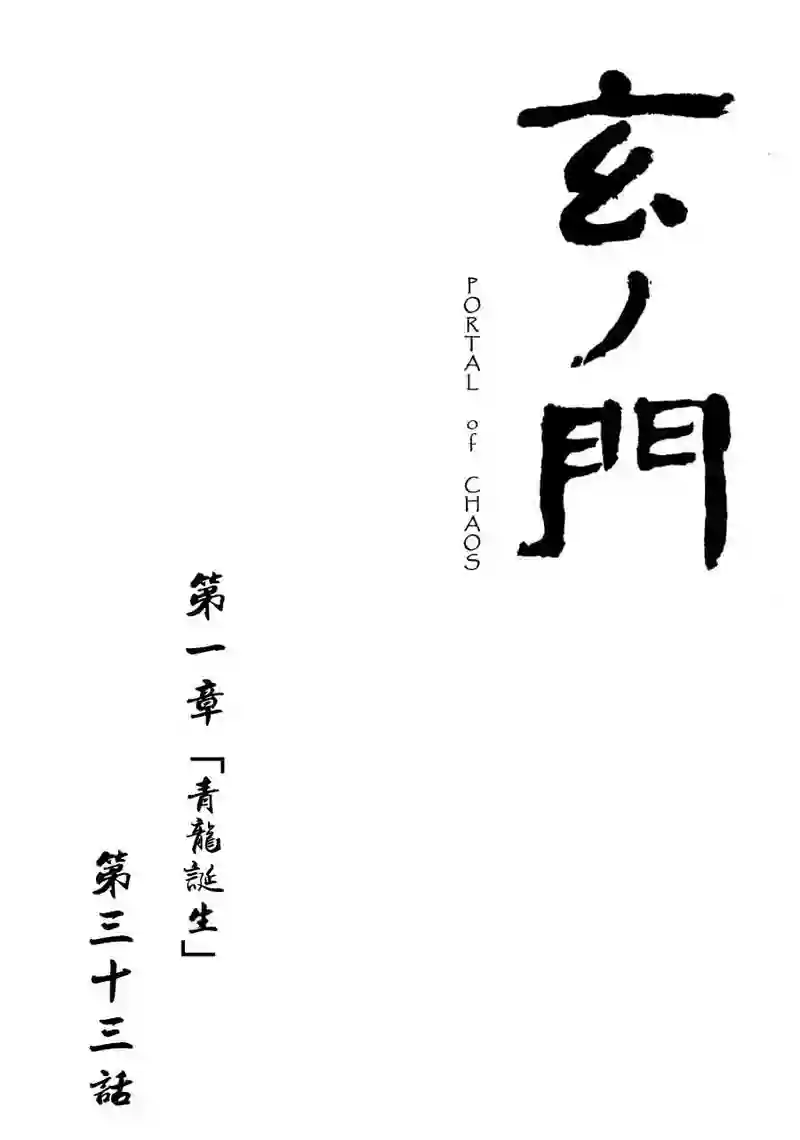 玄ノ門
PORTAL of CHAOS
第一章「青龍誕生」
第三十三話